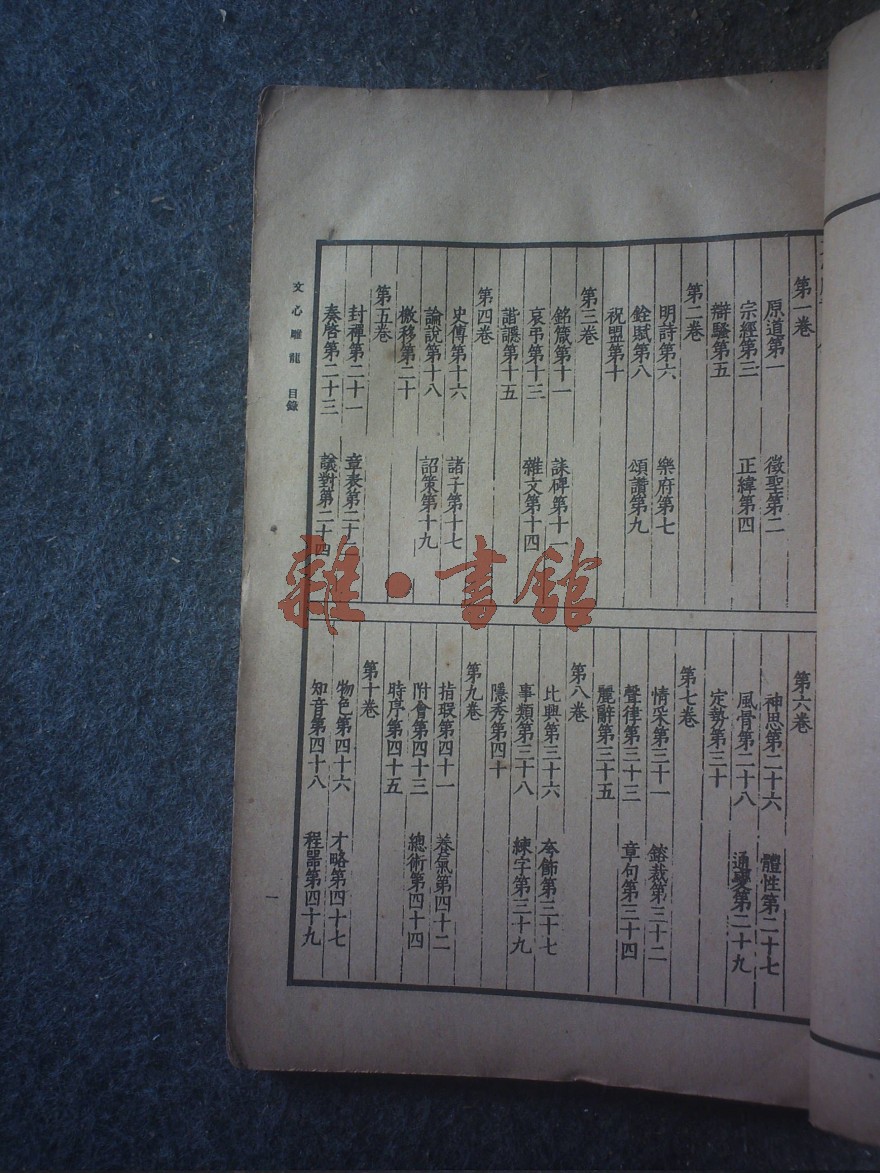 第一卷
原道第一　徵聖第二
宗經第三　正緯第四
辯騷第五
第二卷
明詩第六　樂府第七
銓賦第八　頌讚第九
祝盟第十
第三卷
銘箴第十一　誄碑第十二
哀弔第十三　雜文第十四
諧讔第十五
第四卷
史傳第十六　諸子第十七
論說第十八　詔策第十九
檄移第二十
第五卷
封禪第二十一　章表第二十二
奏啓第二十三　議對第二十四
第六卷
神思第二十六　體性第二十七
風骨第二十八　通變第二十九
定勢第三十
第七卷
情采第三十一　鎔裁第三十二
聲律第三十三　章句第三十四
麗辭第三十五
第八卷
比興第三十六　夸飾第三十七
事類第三十八　練字第三十九
隱秀第四十
第九卷
指瑕第四十一　養氣第四十二
附會第四十三　總術第四十四
時序第四十五
第十卷
物色第四十六　才略第四十七
知音第四十八　程器第四十九
文心雕龍　目錄
一
雜·書館